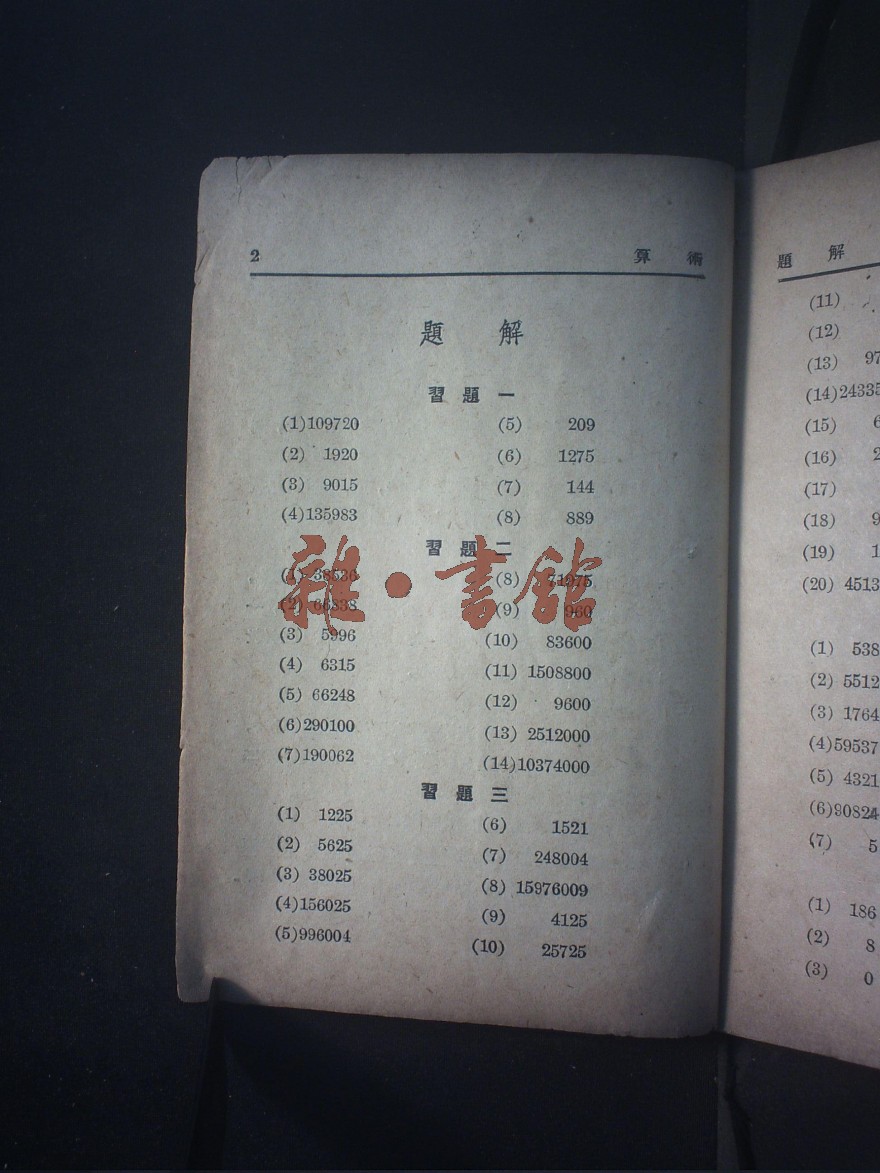 2 算 術
題 解
習題一
(1)109720 (5) 209
(2) 1920 (6) 1275
(3) 9015 (7) 144
(4)135983 (8) 889
習題二
(1) 38530 (8) 71975
(2) 66838 (9) 960
(3) 5996 (10) 83600
(4) 6315 (11) 1508800
(5) 66248 (12) 9600
(6)290100 (13) 2512000
(7)190062 (14)10374000
習題三
(1) 1225 (6) 1521
(2) 5625 (7) 248004
(3) 38025 (8) 15976009
(4)156025 (9) 4125
(5)996004 (10) 25725
雜·書館
題 解
(11)
(12)
(13) 97
(14)24335
(15) 6
(16) 2
(17)
(18) 9
(19) 1
(20) 4513
(1) 538
(2) 5512
(3) 1764
(4)59537
(5) 4321
(6)90824
(7) 5
(1) 186
(2) 8
(3) 0